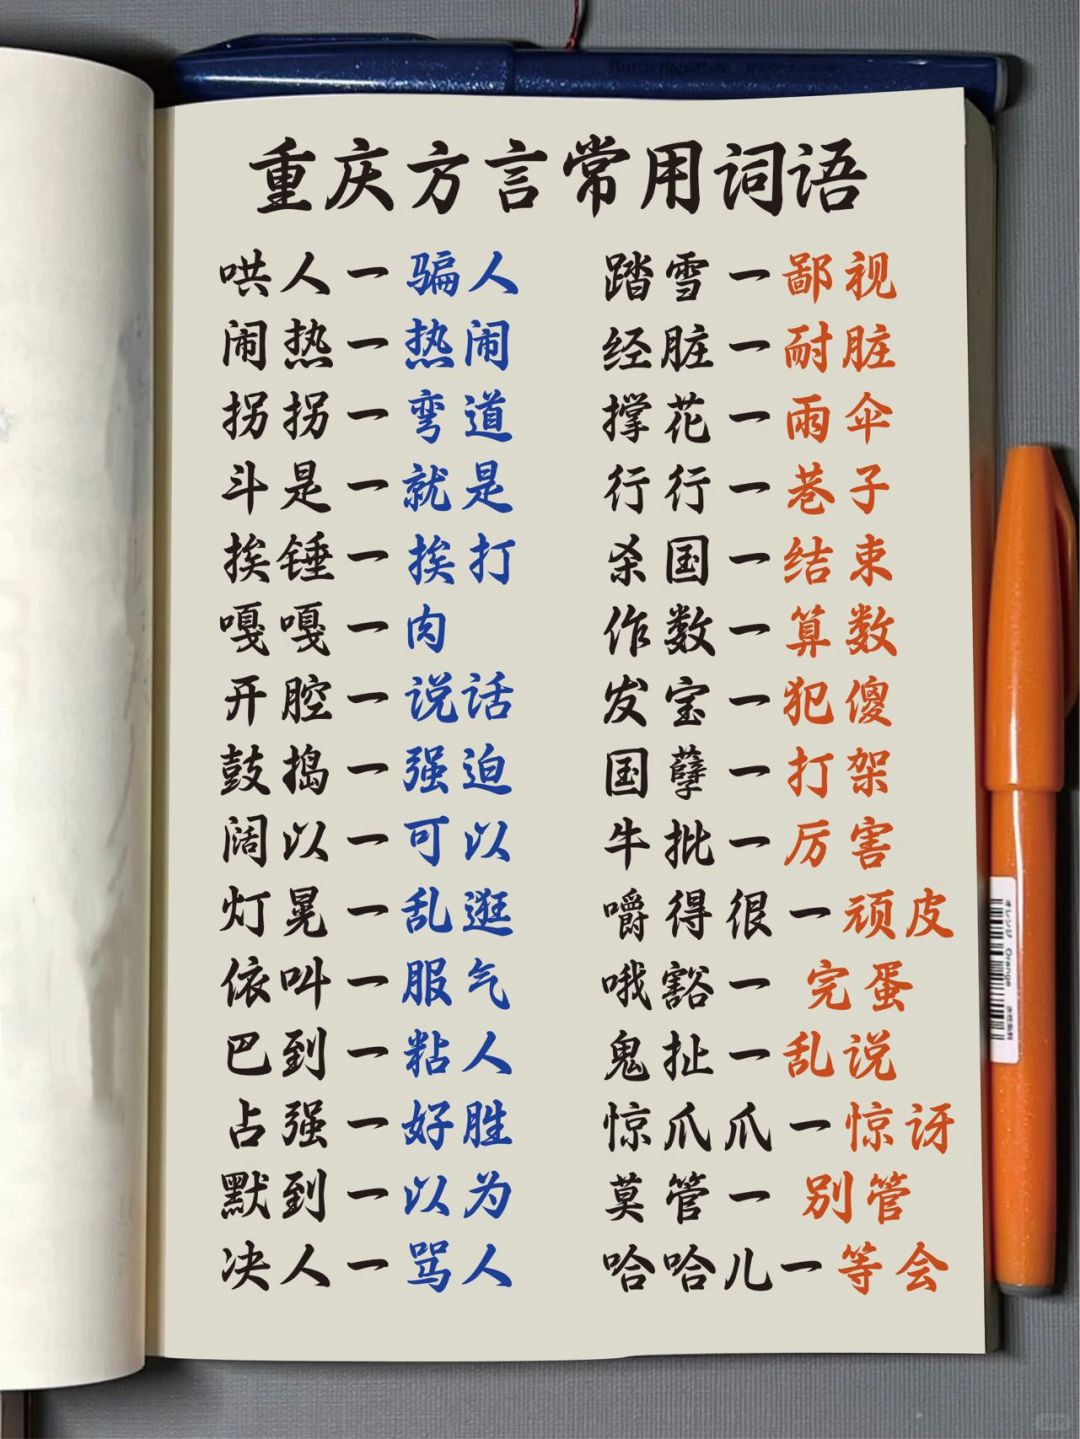 重庆方言常用词语
哄人一骗人
闹热一热闹
拐拐一弯道
斗是一就是
挨锤一挨打
嘎嘎一肉
开腔一说话
鼓捣一强迫
阔以一可以
灯晃一乱逛
依叫一服气
巴到一粘人
占强一好胜
默到一以为
决人一骂人
踏雪一鄙视
经脏一耐脏
撑花一雨伞
行行一巷子
杀国一结束
作数一算数
发宝一犯傻
国孽一打架
牛批一厉害
嚼得很一顽皮
哦豁一完蛋
鬼扯一乱说
惊爪爪一惊讶
莫管一别管
哈哈儿一等会
オレンジ Orange